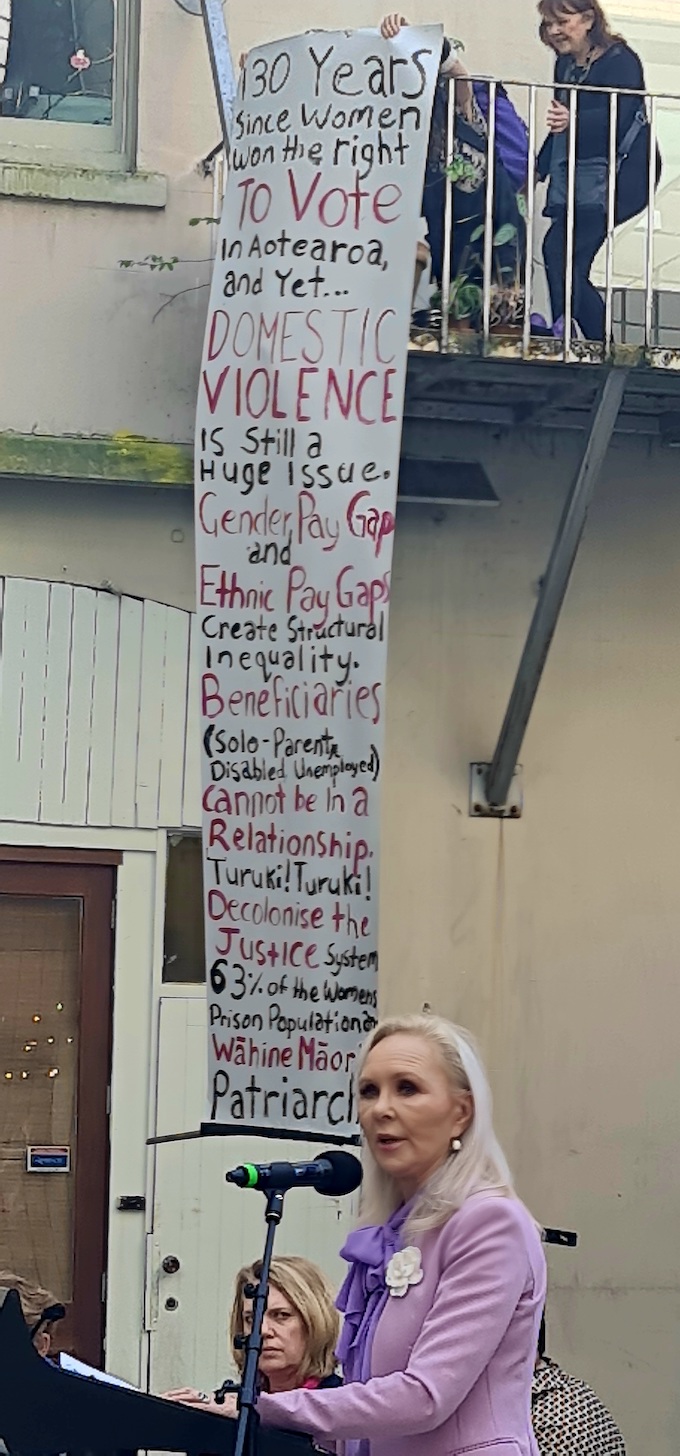 130 Years
Since Women
won the right
To Vote
In Aotearoa,
and Yet...
DOMESTIC
VIOLENCE
Is Still a
Huge Issue.
Gender Pay Gap
and
Ethnic Pay Gaps
Create Structural
Inequality.
Beneficiaries
(Solo-Parent,
Disabled, Unemployed)
Cannot be In a
Relationship.
Turuki! Turuki!
Decolonise the
Justice System
63% of the Womens
Prison Population
Wāhine Māori
Patriarch